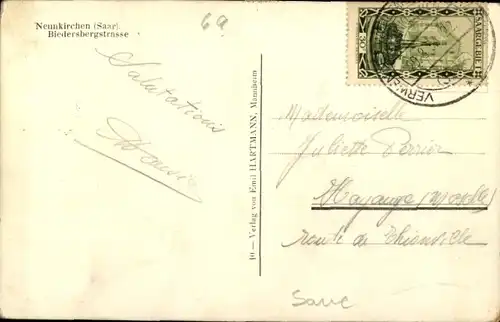 Neunkirchen (Saar)
Biedersbergstrasse
69
Salutations
10 — Verlag von Emil HARTMANN, Mannheim
SAARGEBIET
30
Mademoiselle
Juliette Perrier
Hayange (Moselle)
route de Thionville